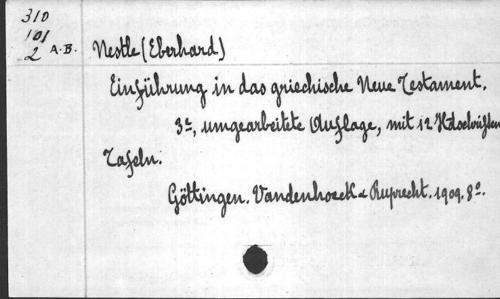 310
101
2 A.B.
Nestle (Eberhard)
Einführung in das griechische Neue Testament.
3e, umgearbeitete Auflage, mit 12 Hdschriften
Tafeln.
Göttingen. Vandenhoeck & Ruprecht. 1909. 8o.